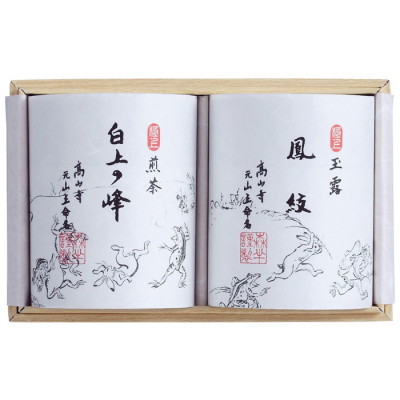 煎茶
白上の峰
高山寺
元山主命名
玉露
鳳紋
高山寺
元山主命名